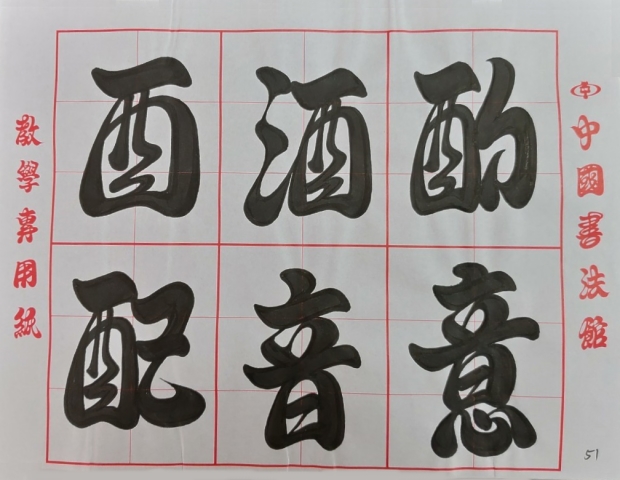 酉酒酌
配音意
中國書法館
教學專用紙
51